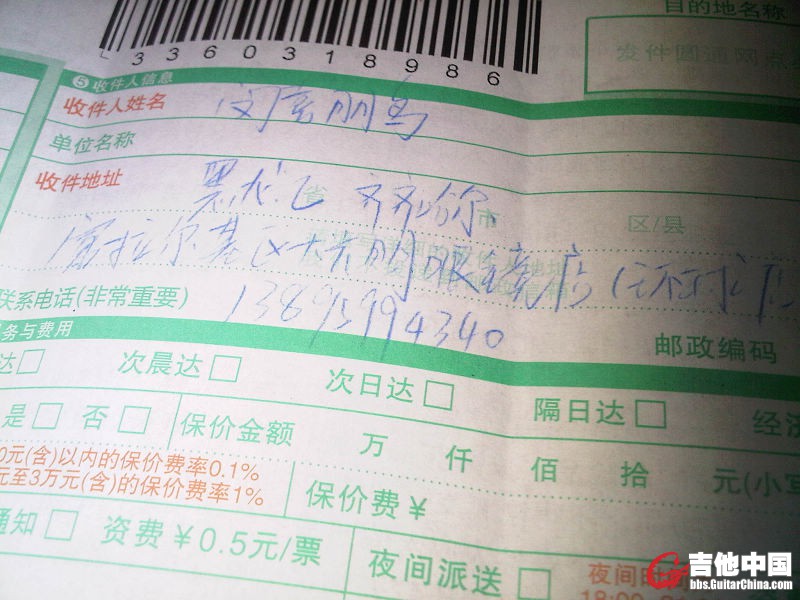 目的地名称
发件圆通网点
3360318986
⑤收件人信息
收件人姓名
单位名称
收件地址 黑龙江省齐齐哈尔市 区/县
富拉尔基区大光明眼镜店(环球店
联系电话(非常重要) 13895994340
务与费用
邮政编码
达□ 次晨达□ 次日达□ 隔日达□ 经济
是□ 否□ 保价金额 万 仟 佰 拾 元(小写
0元(含)以内的保价费率0.1%
元至3万元(含)的保价费率1%
保价费¥
通知□ 资费¥0.5元/票 夜间派送□ 夜间
吉他中国
bbs.GuitarChina.com